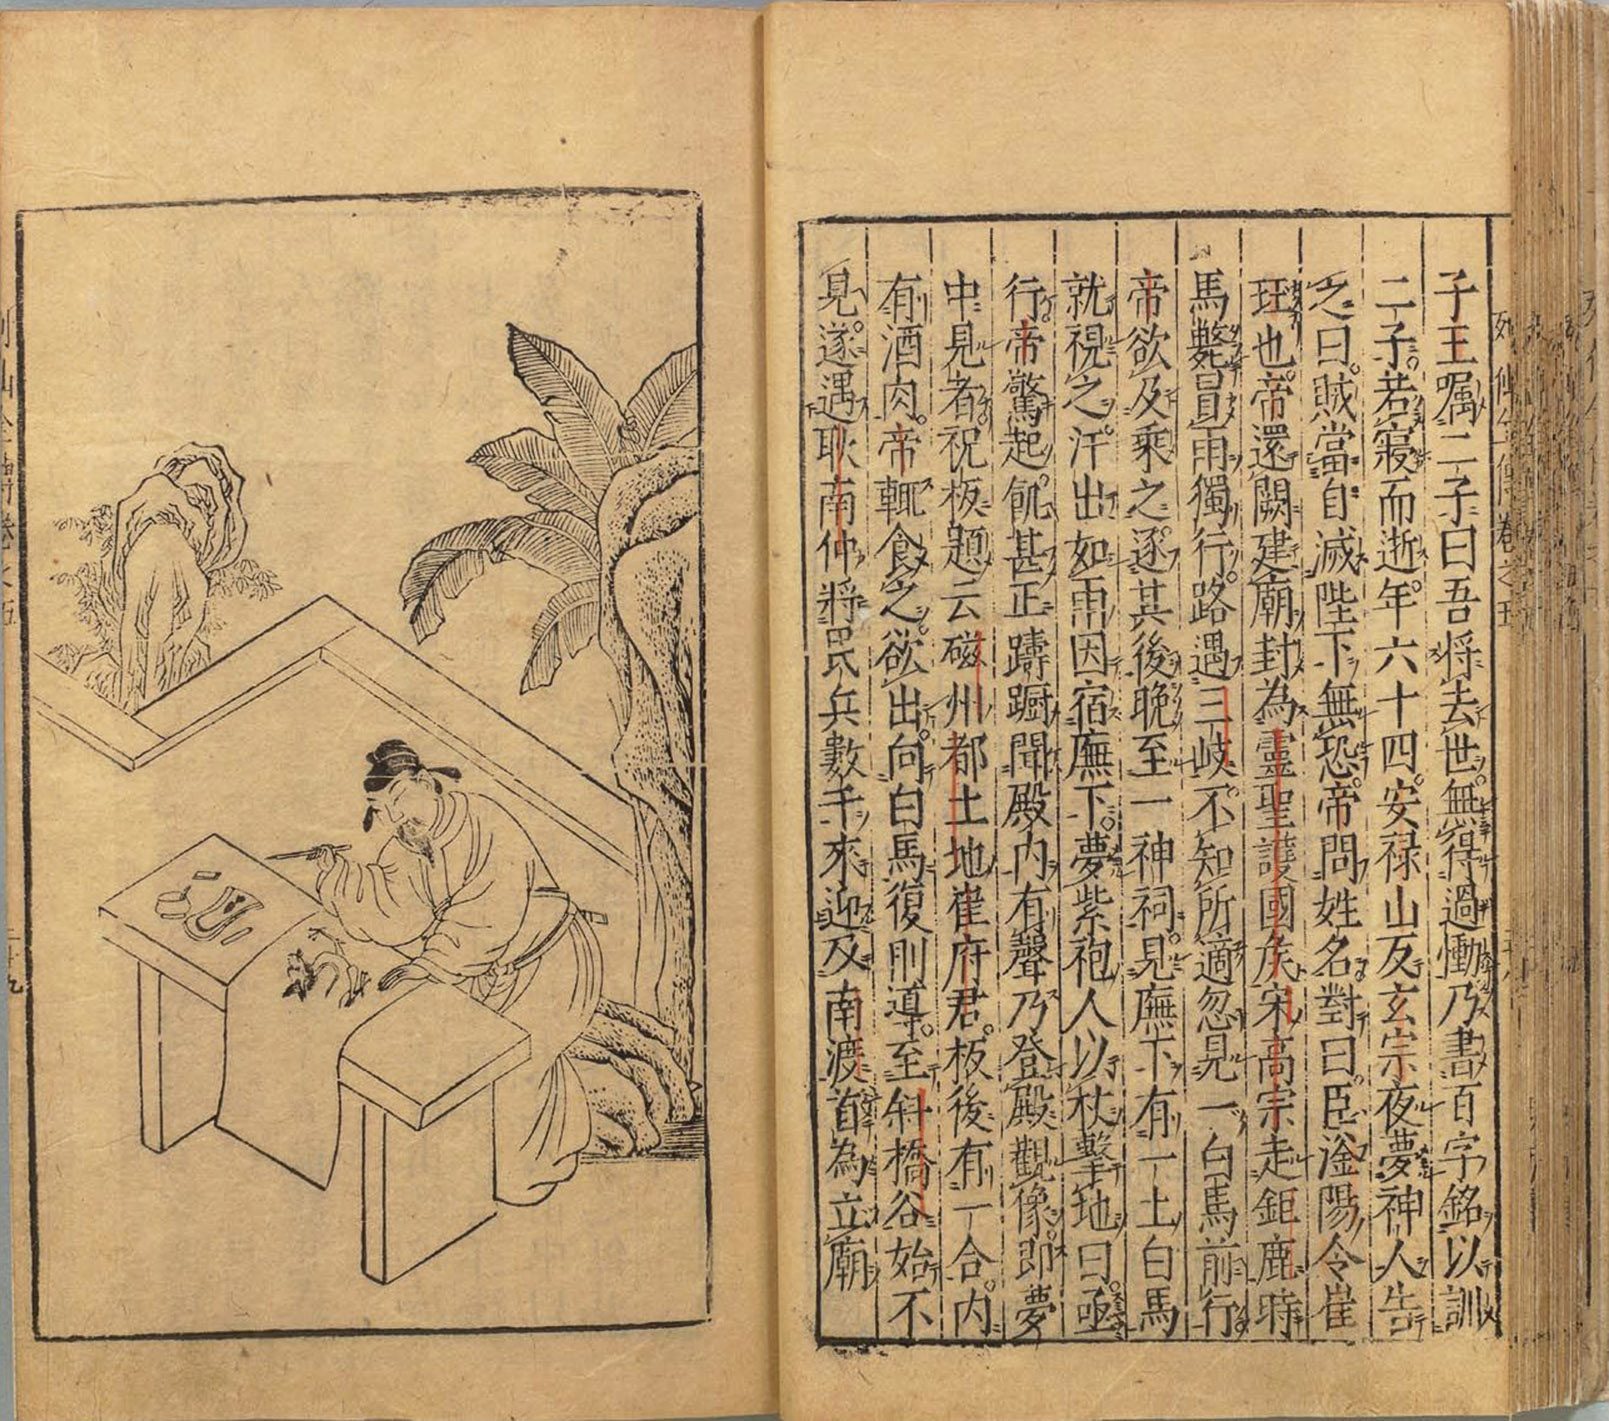 子玉嘱二子曰吾将去世。無得過慟乃書百字銘以訓
二子。若寢而逝。年六十四。安禄山反玄宗夜夢神人告
之曰。賊當自滅陛下無恐。帝問姓名對曰。臣滏陽令崔
珏也。帝還闕建廟封為靈聖護國侯宋高宗走鉅鹿時
馬斃冒雨獨行。路遇三岐。不知所適忽見一白馬前行
帝欲及乗之。逐其後晚至一神祠。見廡下有一土白馬
就視之。汗出如雨因宿廡下。夢紫袍人以杖擊地曰。亟
行。帝驚起。飢甚正躊蹰聞殿内有聲乃登殿觀像。即夢
中見者。祝板題云磁州都土地崔府君。板後有一合。内
有酒肉。帝輒食之。欲出。向白馬復前導。至斜橋谷始不
見。遂遇耿南仲将民兵數千來迎及南渡首為立廟